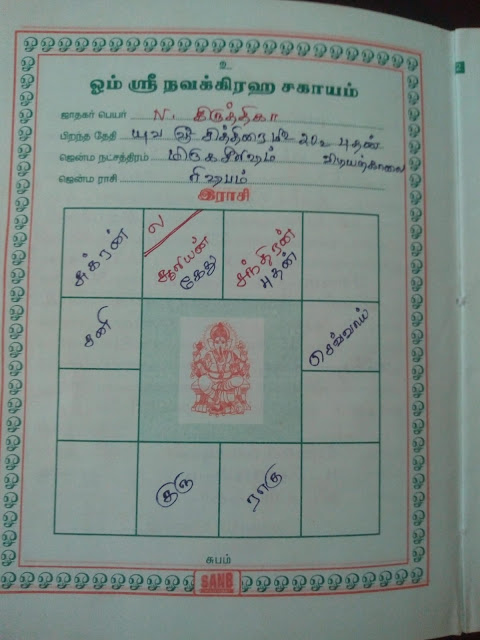 உ
ஓம் ஸ்ரீ நவக்கிரஹ சகாயம்
ஜாதகர் பெயர் N. கிருத்திகா
பிறந்த தேதி யுவ ஞு சித்திரை மீ 20 உ புதன்
விடியற்காலை
ஜென்ம நட்சத்திரம் மிருகசீரிஷம்
ஜென்ம ராசி ரிஷபம்
இராசி
சுக்ரன்
ல
சூரியன்
கேது
சந்திரன்
புதன்
சனி
செவ்வாய்
குரு
ராகு
சுபம்
SANB